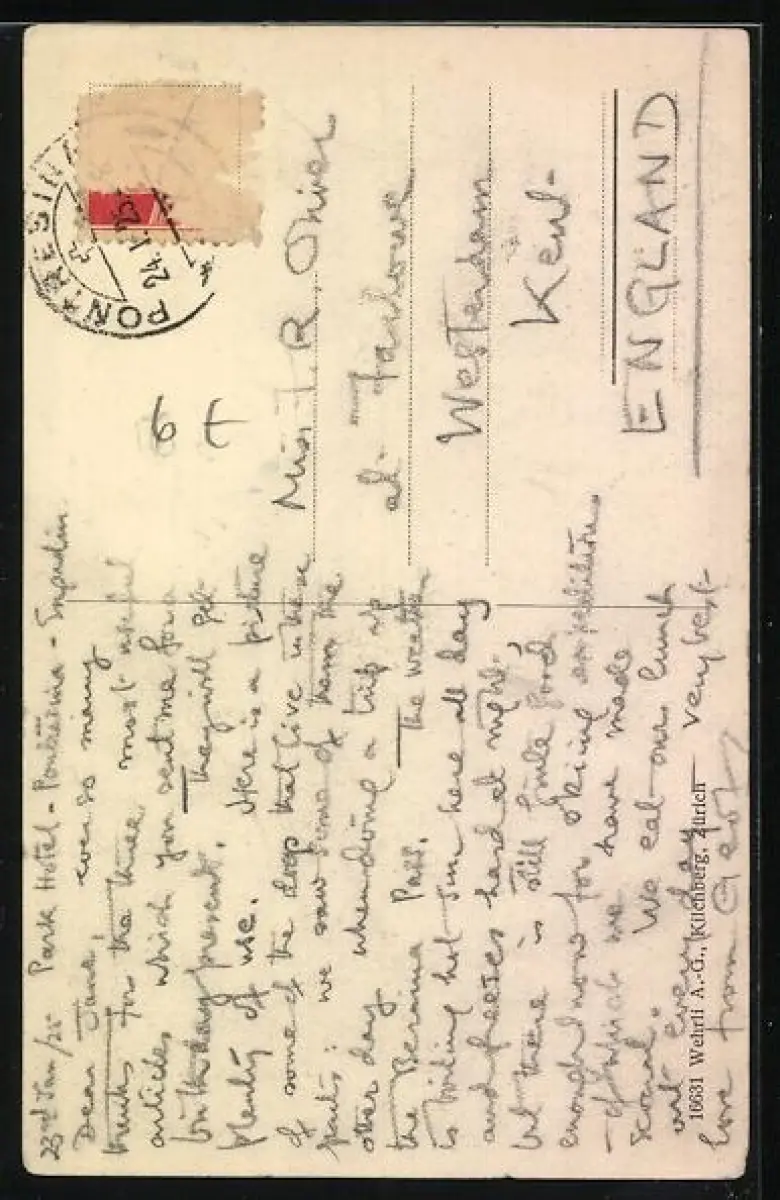 23rd Jan/25 Park Hotel - Pontresina - Engadin
Dear Jane, ever so many
thanks for the three most useful
articles which you sent me for a
birthday present. They will get
plenty of use. Here is a picture
of some of the dogs that live in these
parts: we saw some of them the
other day when doing a trip up
the Bernina Pass. The weather
is boiling hot sun here all day
and freezes hard at night,
but there is still quite good
enough snow for skiing expeditions
- of which we have made
several. We eat our lunch
out every day very best
love from
PONTRESINA
24.I.25
6 t
Miss J. R. Oliver
at
Westerham
Kent
ENGLAND
16631 Wehrli A.-G., Kilchberg. Zürich